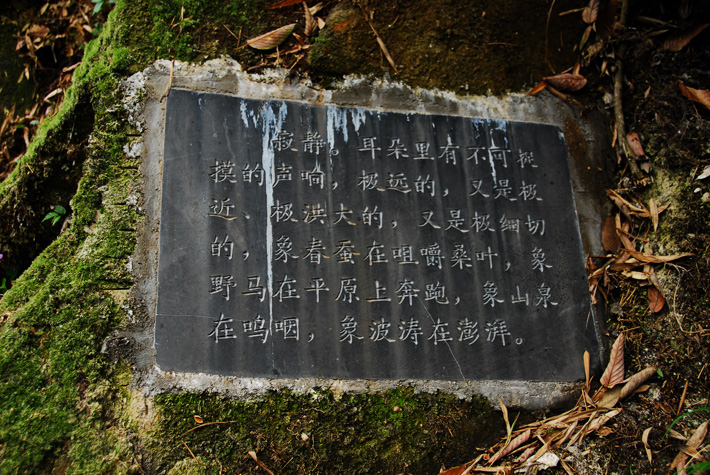 寂静。耳朵里有不可捉
摸的声响，极远的，又是极
近、极洪大的，又是极细切
的，象春蚕在咀嚼桑叶，象
野马在平原上奔跑，象山泉
在鸣咽，象波涛在澎湃。